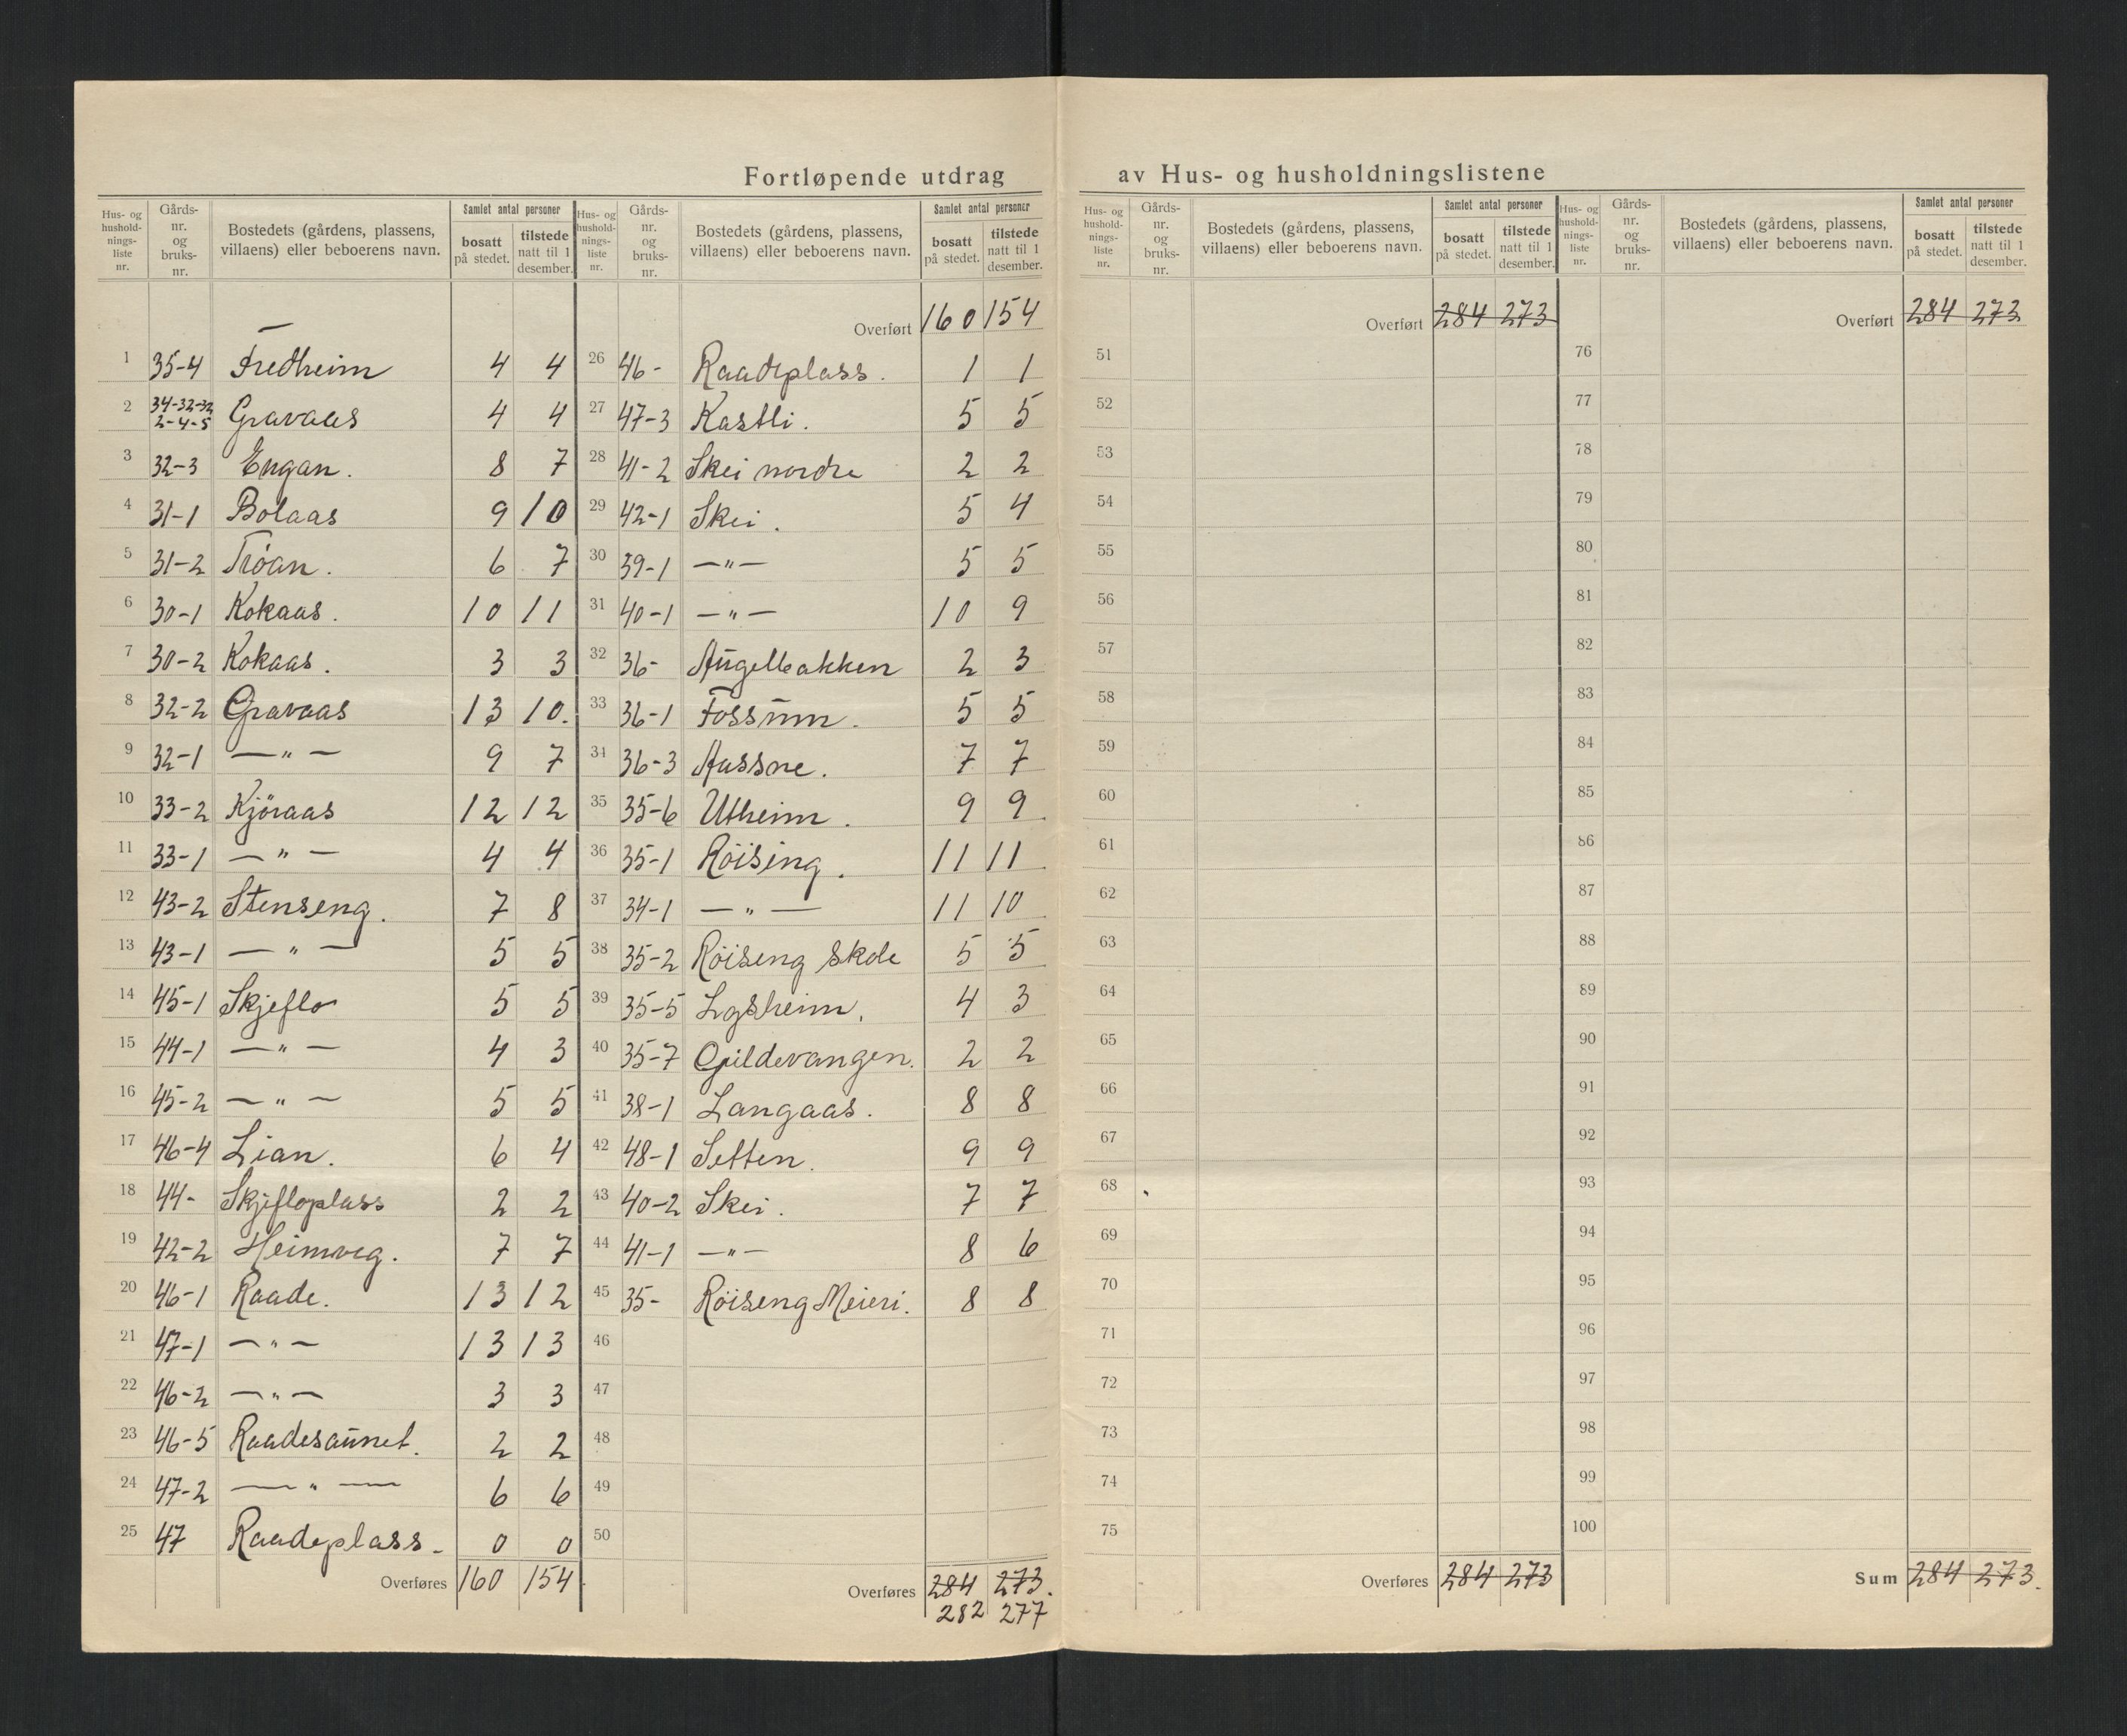 Fortløpende utdrag av Hus- og husholdningslistene
Hus- og hushold-nings-liste nr. Gårds-nr. og bruks-nr. Bostedets (gårdens, plassens, villaens) eller beboerens navn. Samlet antal personer bosatt på stedet. tilstede natt til 1 desember.
1 35-4 Fredheim 4 4
2 34-32-32 2-4-5 Gravaas 4 4
3 32-3 Engan. 8 7
4 31-1 Bolaas 9 10
5 31-2 Trøan. 6 7
6 30-1 Kokaas. 10 11
7 30-2 Kokaas. 3 3
8 32-2 Gravaas 13 10.
9 32-1 —"— 9 7
10 33-2 Kjöraas 12 12
11 33-1 —"— 4 4
12 43-2 Stenseng. 7 8
13 43-1 —"— 5 5
14 45-1 Skjeflo 5 5
15 44-1 —"— 4 3
16 45-2 —"— 5 5
17 46-4 Lian. 6 4
18 44- Skjefloplass 2 2
19 42-2 Heimveg. 7 7
20 46-1 Raade. 13 12
21 47-1 —"— 13 13
22 46-2 —"— 3 3
23 46-5 Raadesaunet. 2 2
24 47-2 —"— 6 6
25 47 Raadeplass- 0 0
Overføres 160 154
Hus- og hushold-nings-liste nr. Gårds-nr. og bruks-nr. Bostedets (gårdens, plassens, villaens) eller beboerens navn. Samlet antal personer bosatt på stedet. tilstede natt til 1 desember.
Overført 160 154
26 46- Raadeplass. 1 1
27 47-3 Kastli. 5 5
28 41-2 Skei nordre 2 2
29 42-1 Skei. 5 4
30 39-1 —"— 5 5
31 40-1 —"— 10 9
32 36- Augelbakken 2 3
33 36-1 Fossum. 5 5
34 36-3 Aassne. 7 7
35 35-6 Utheim. 9 9
36 35-1 Röising. 11 11
37 34-1 —"— 11 10
38 35-2 Röiseng skole 5 5
39 35-5 Lysheim. 4 3
40 35-7 Gildevangen. 2 2
41 38-1 Langaas. 8 8
42 48-1 Setten. 9 9
43 40-2 Skei. 7 7
44 41-1 —"— 8 6
45 35- Röiseng Meieri. 8 8
46
47
48
49
50
Overføres 284 273.
282 277
Hus- og hushold-nings-liste nr. Gårds-nr. og bruks-nr. Bostedets (gårdens, plassens, villaens) eller beboerens navn. Samlet antal personer bosatt på stedet. tilstede natt til 1 desember.
Overført 284 273
51
52
53
54
55
56
57
58
59
60
61
62
63
64
65
66
67
68
69
70
71
72
73
74
75
Overføres 284 273
Hus- og hushold-nings-liste nr. Gårds-nr. og bruks-nr. Bostedets (gårdens, plassens, villaens) eller beboerens navn. Samlet antal personer bosatt på stedet. tilstede natt til 1 desember.
Overført 284 273
76
77
78
79
80
81
82
83
84
85
86
87
88
89
90
91
92
93
94
95
96
97
98
99
100
Sum 284 273.